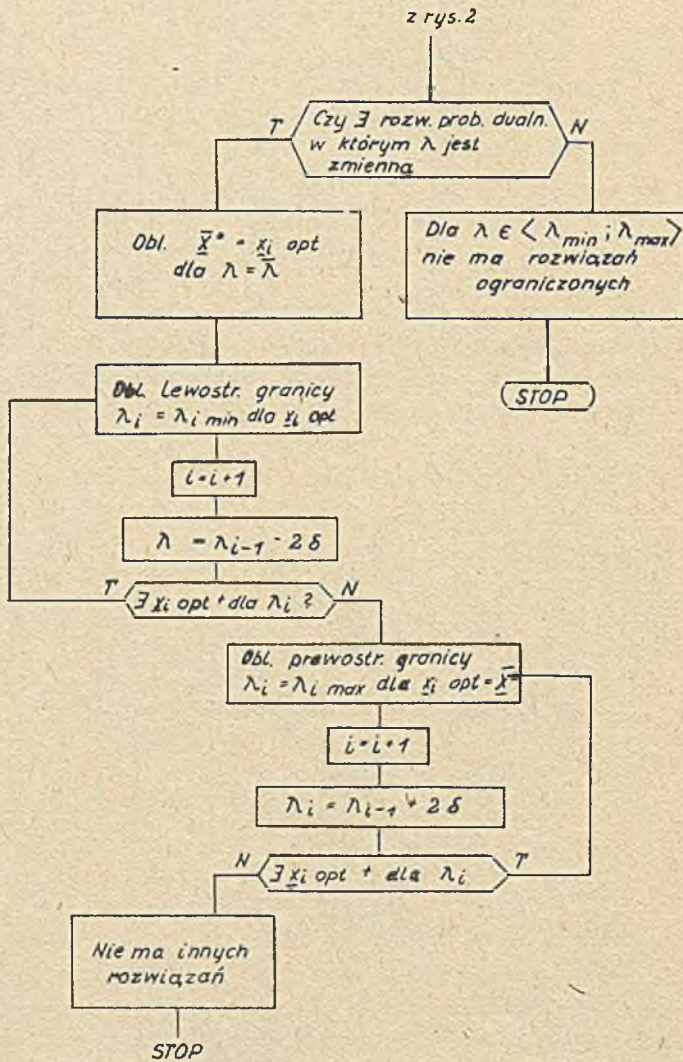 z rys. 2
Czy ∃ rozw. prob. dualn.
w którym λ jest
zmienną
T
N
Obl. x̄* = x̲i opt
dla λ = λ̄
Dla λ ϵ ⟨ λmin ; λmax ⟩
nie ma rozwiązań
ograniczonych
STOP
Obl. Lewostr. granicy
λi = λi min dla x̲i opt
i = i + 1
λ = λi-1 - 2 δ
T
∃ x̲i opt + dla λi ?
N
Obl. prawostr. granicy
λi = λi max dla x̲i opt = x̲̄*
i = i + 1
λi = λi-1 + 2 δ
N
∃ x̲i opt + dla λi
T
Nie ma innych
rozwiązań
STOP